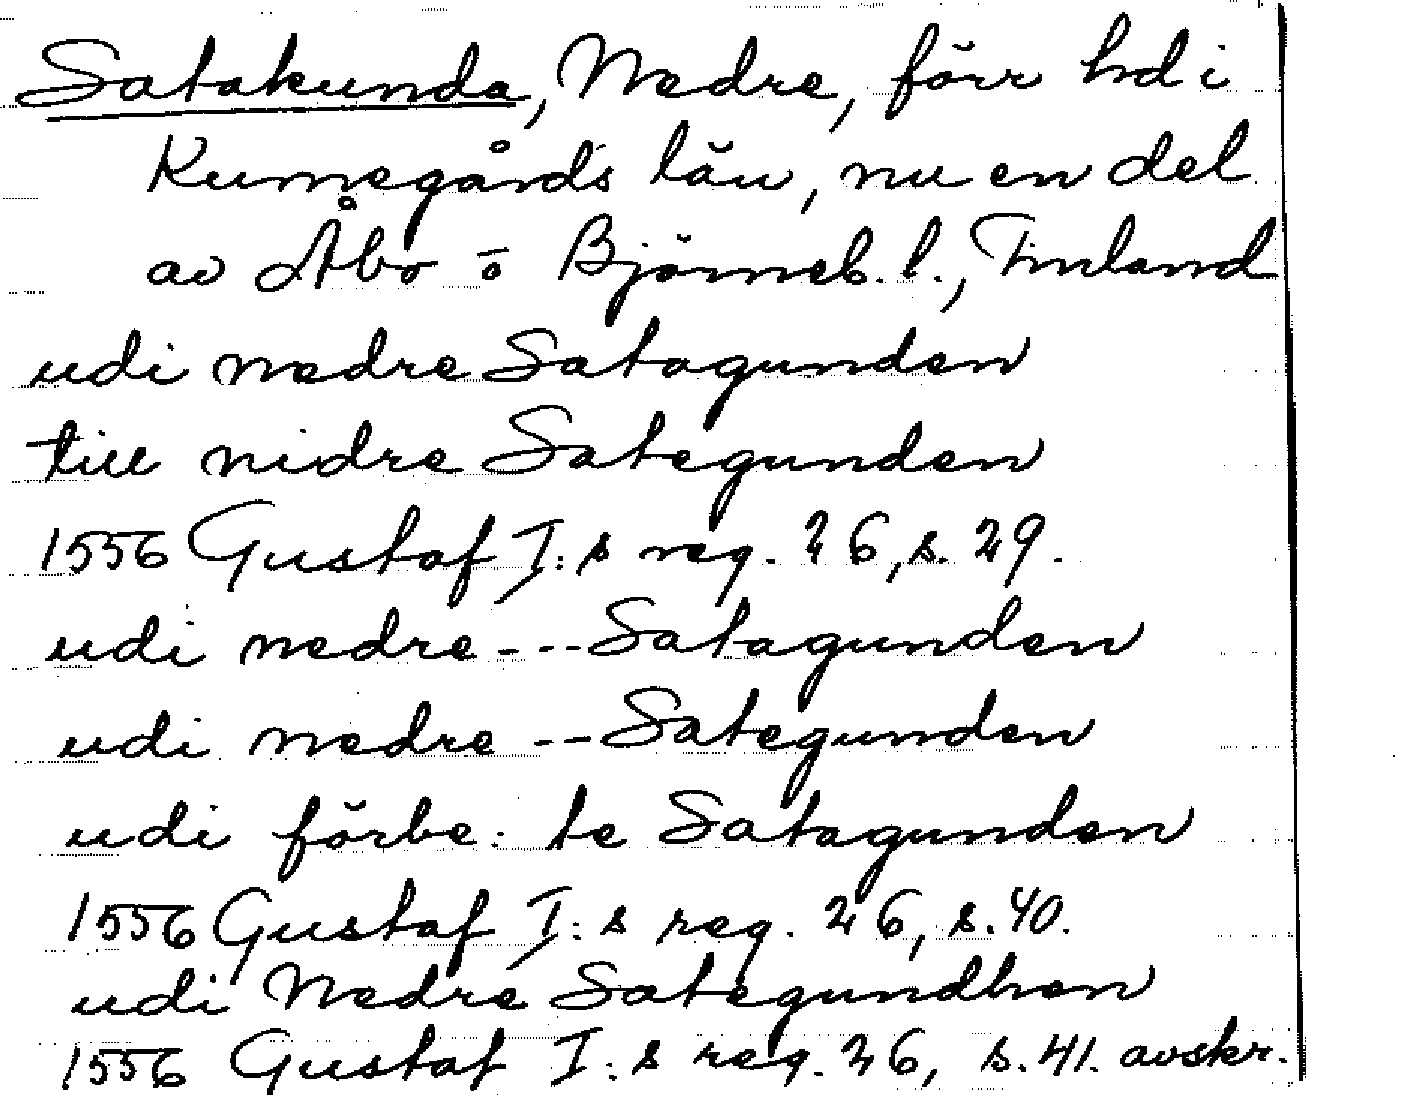 Satakunda, Nedre, förr hd i
Kumogårds län, nu en del
av Åbo o Björneb. l., Finland
udi nedre Satagunden
till nidre Sategunden
1556 Gustaf I:s reg. 26, s. 29.
udi nedre --- Satagunden
udi nedre -- Sategunden
udi förbe: te Satagunden
1556 Gustaf I:s reg. 26, s. 40.
udi Nedre Sategundhen
1556 Gustaf I:s reg. 26, s. 41. avskr.